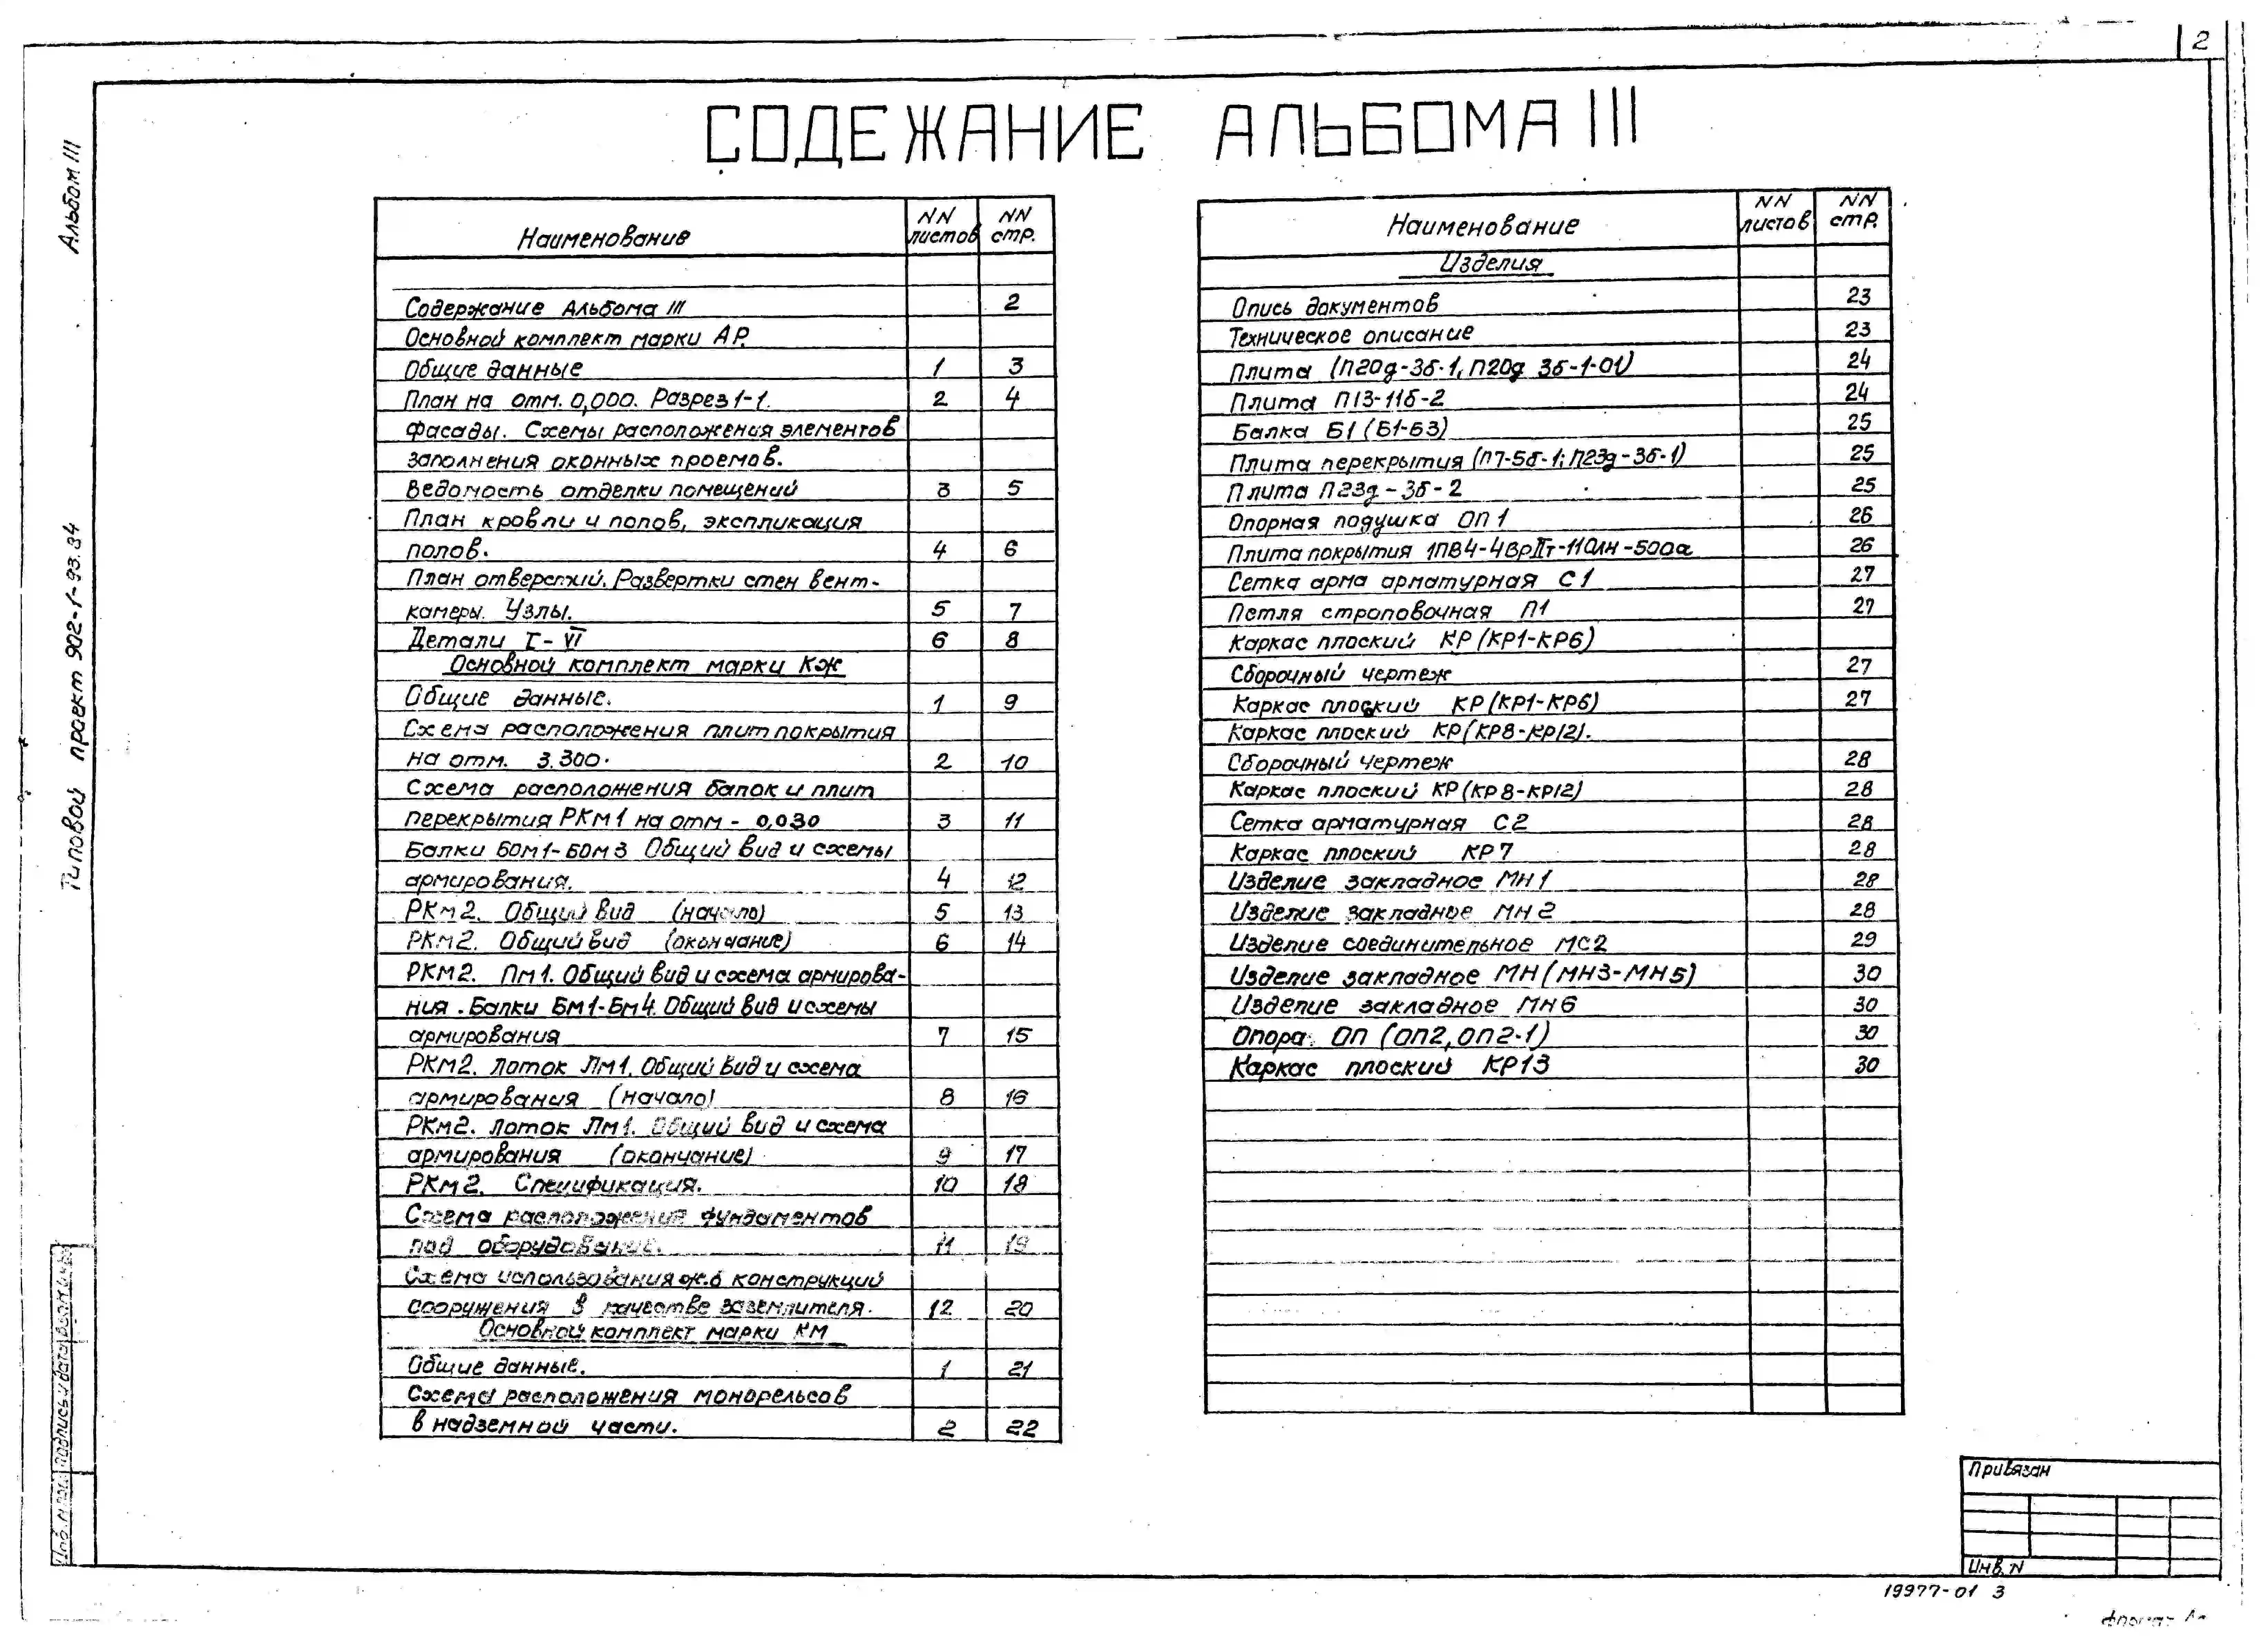 2
СОДЕЖАНИЕ АЛЬБОМА III
Альбом III
Типовой проект 902-1-93.84
Наименование NN листов NN стр.
Содержание Альбома III 2
Основной комплект марки АР.
Общие данные 1 3
План на отм. 0,000. Разрез 1-1. 2 4
Фасады. Схемы расположения элементов
заполнения оконных проемов.
Ведомость отделки помещений 3 5
План кровли и полов, экспликация
полов. 4 6
План отверстий. Развертки стен вент-
камеры. Узлы. 5 7
Детали I-VI 6 8
Основной комплект марки КЖ
Общие данные. 1 9
Схема расположения плит покрытия
на отм. 3.300. 2 10
Схема расположения балок и плит
перекрытия РКм1 на отм - 0,030 3 11
Балки БОм1-БОм3 Общий вид и схемы
армирования. 4 12
РКм2. Общий вид (начало) 5 13
РКм2. Общий вид (окончание) 6 14
РКм2. Пм1. Общий вид и схема армирова-
ния. Балки Бм1-Бм4. Общий вид и схемы
армирования 7 15
РКм2. Лоток Лм1. Общий вид и схема
армирования (начало) 8 16
РКм2. Лоток Лм1. Общий вид и схема
армирования (окончание) 9 17
РКм2. Спецификация. 10 18
Схема расположения фундаментов
под оборудование. 11 19
Схема использования ж.б конструкций
сооружения в качестве заземлителя. 12 20
Основной комплект марки КМ
Общие данные. 1 21
Схема расположения монорельсов
в надземной части. 2 22
Наименование NN листов NN стр.
Изделия
Опись документов 23
Техническое описание 23
Плита (П20д-3б-1, П20д 3б-1-01) 24
Плита П13-11б-2 24
Балка Б1 (Б1-Б3) 25
Плита перекрытия (П7-5б-1; П23д-3б-1) 25
Плита П23д-3б-2 25
Опорная подушка ОП1 26
Плита покрытия 26
Сетка арма арматурная С1 27
Петля строповочная П1 27
Каркас плоский КР (КР1-КР6)
Сборочный чертеж 27
Каркас плоский КР (КР1-КР6) 27
Каркас плоский КР (КР8-КР12).
Сборочный чертеж 28
Каркас плоский КР (КР8-КР12) 28
Сетка арматурная С2 28
Каркас плоский КР7 28
Изделие закладное МН1 28
Изделие закладное МН2 28
Изделие соединительное МС2 29
Изделие закладное МН (МН3-МН5) 30
Изделие закладное МН6 30
Опора ОП (ОП2, ОП2-1) 30
Каркас плоский КР13 30
Привязан
Инв. N
19977-01 3